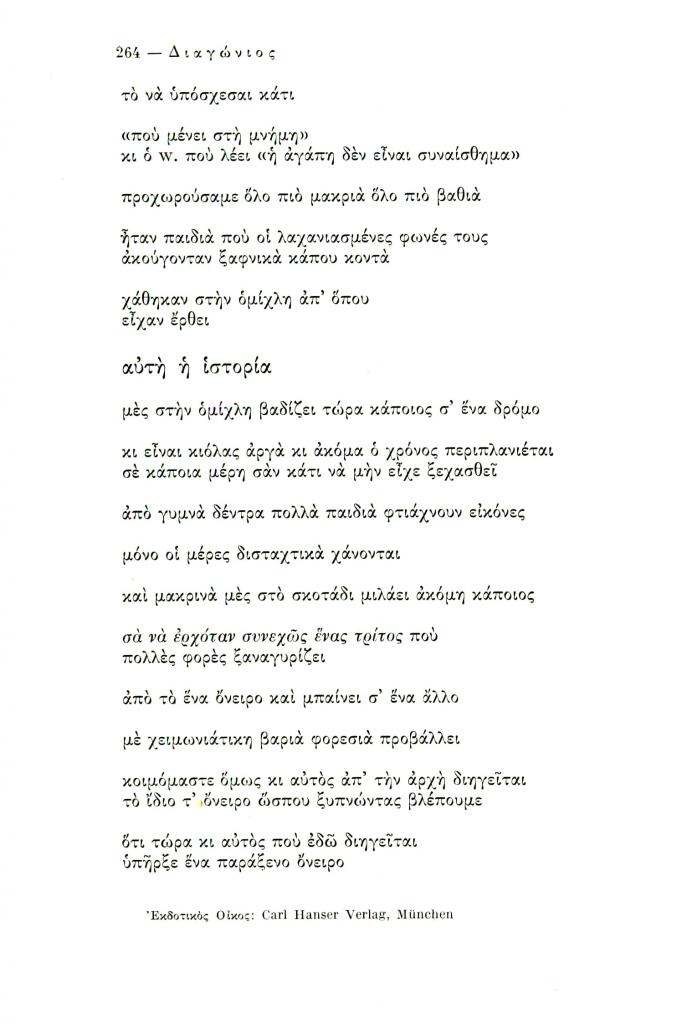 264 — Διαγώνιος
τὸ νὰ ὑπόσχεσαι κάτι
«ποὺ μένει στὴ μνήμη»
κι ὁ w. ποὺ λέει «ἡ ἀγάπη δὲν εἶναι συναίσθημα»
προχωρούσαμε ὅλο πιὸ μακριὰ ὅλο πιὸ βαθιὰ
ἦταν παιδιὰ ποὺ οἱ λαχανιασμένες φωνές τους
ἀκούγονταν ξαφνικὰ κάπου κοντὰ
χάθηκαν στὴν ὁμίχλη ἀπ’ ὅπου
εἶχαν ἔρθει
αὐτὴ ἡ ἱστορία
μὲς στὴν ὁμίχλη βαδίζει τώρα κάποιος σ’ ἕνα δρόμο
κι εἶναι κιόλας ἀργὰ κι ἀκόμα ὁ χρόνος περιπλανιέται
σὲ κάποια μέρη σὰν κάτι νὰ μὴν εἶχε ξεχασθεῖ
ἀπὸ γυμνὰ δέντρα πολλὰ παιδιὰ φτιάχνουν εἰκόνες
μόνο οἱ μέρες δισταχτικὰ χάνονται
καὶ μακρινὰ μὲς στὸ σκοτάδι μιλάει ἀκόμη κάποιος
σὰ νὰ ἐρχόταν συνεχῶς ἕνας τρίτος ποὺ
πολλὲς φορὲς ξαναγυρίζει
ἀπὸ τὸ ἕνα ὄνειρο καὶ μπαίνει σ’ ἕνα ἄλλο
μὲ χειμωνιάτικη βαριὰ φορεσιὰ προβάλλει
κοιμόμαστε ὅμως κι αὐτὸς ἀπ’ τὴν ἀρχὴ διηγεῖται
τὸ ἴδιο τ’ ὄνειρο ὥσπου ξυπνώντας βλέπουμε
ὅτι τώρα κι αὐτὸς ποὺ ἐδῶ διηγεῖται
ὑπῆρξε ἕνα παράξενο ὄνειρο
Ἐκδοτικὸς Οἶκος: Carl Hanser Verlag, München